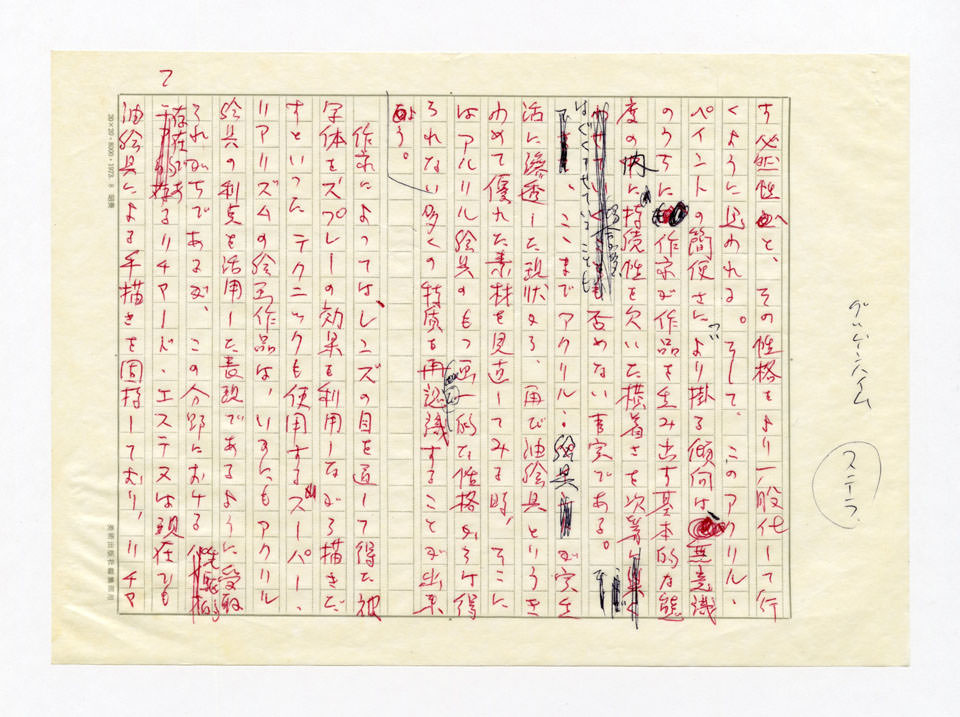 グッゲンハイム
ステラ
す必然性と、その性格をより一般化して行
くように思われる。そして、このアクリル・
ペイントの簡便さについより掛る傾向は無意識
のうちに作家が作品を生み出す基本的な態
度の内に持続性を欠いた横着さを次第に
はぐくませていることも否めない事実である。
、ここまでアクリル・絵具が実生
活に滲透した現状から、再び油絵具というき
わめて優れた素材を見直してみる時、そこに
はアクリル絵具のもつ画一的な性格から得
られない多くの特質を再認識することが出来
よう。
作家によっては、レンズの目を通して得た被
写体をスプレーの効果を利用しながら描きだ
すといったテクニックも使用するスーパー・
リアリズムの絵画作品は、いかにもアクリル
絵具の利点を活用した表現であるように受取
られがちであるが、この分野における
存在であるリチャード・エステスは現在でも
油絵具による手描きを固持しており、リチャ
2
20×20・8000・1973.8